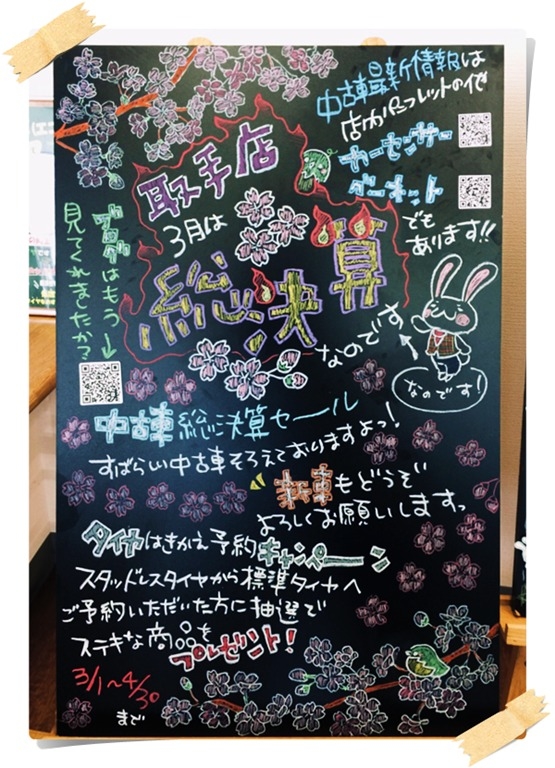 中古車最新情報は
店内パンフレットの他
カーセンサー
グーネット
でも
あります!!
取手店
3月は
総決算
なのです
なのです!
ブログはもう
見てくれましたか?
中古車総決算セール
すばらしい中古車そろえておりますよっ!
新車もどうぞ
よろしくお願いしますっ
タイヤはきかえ予約キャンペーン
スタッドレスタイヤから標準タイヤへ
ご予約いただいた方に抽選で
ステキな商品を
プレゼント!
3/1~4/30
まで